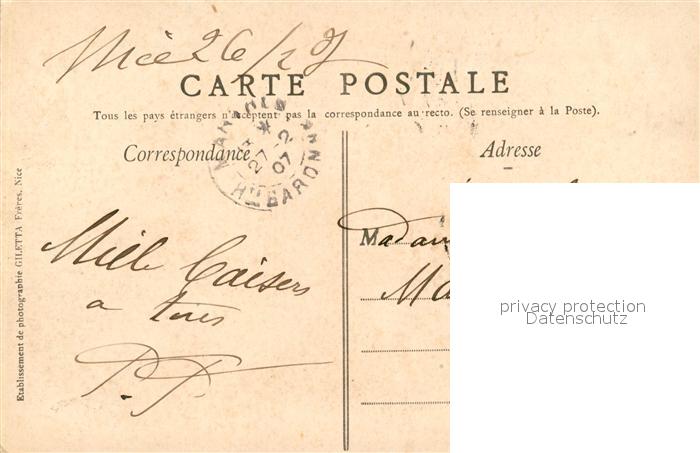 Nice 26/2 07
CARTE POSTALE
Tous les pays étrangers n'acceptent pas la correspondance au recto. (Se renseigner à la Poste).
Correspondance
Adresse
27 -2
07
Hte GARONNE
Etablissement de photographie GILETTA Frères, Nice
Mille Baisers
a tous
P. F.
Madam
Ma
privacy protection
Datenschutz